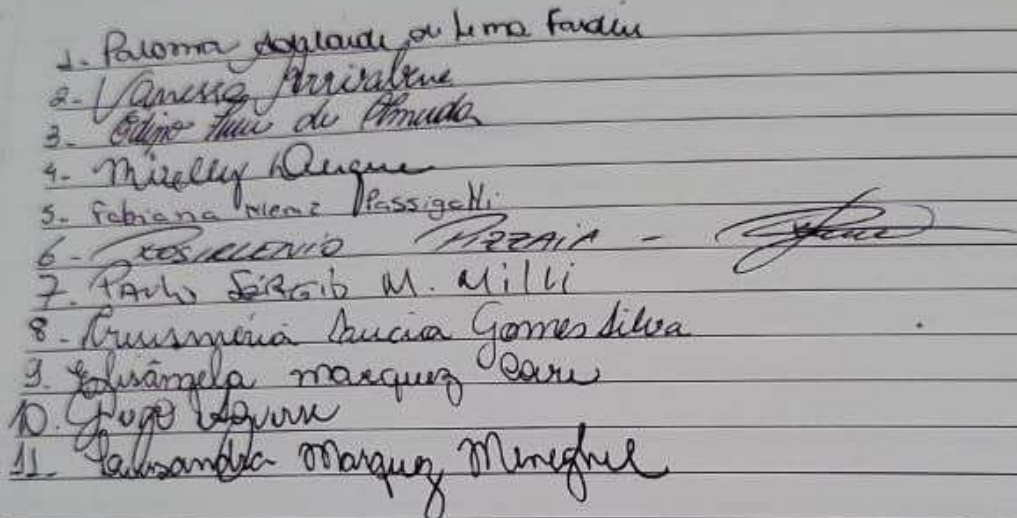 1. Paloma Adglaide de Lima Fardin
2- Vanessa Arrivabene
3- Edino Luiz de Almeida
4- Mirelly Duque
5- Fabiana Passigatti
6- ROSIRLENIO PIZZAIA -
7. PAULO SÉRGIO M. Milli
8- Lucia Gomes Silva
9. Elisângela marquez
10. Hugo Aguirre
11- Marquez Meneghel